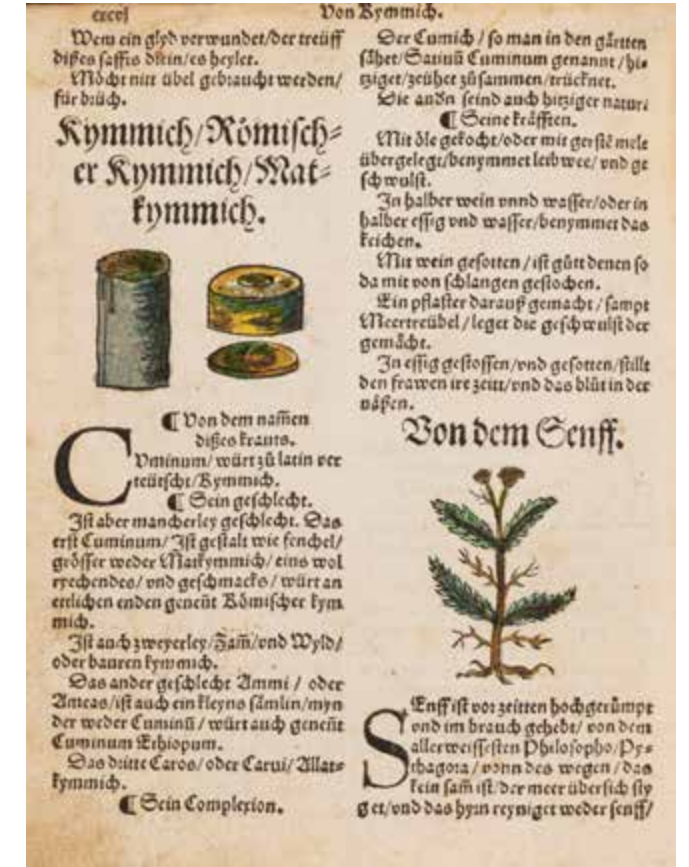 xcvj
Von Kymmich.
Wem ein glyd verwundet/der treüff
dißes saffts dꝛin/es heylet.
Möcht nitt übel gebraucht werden/
für brüch.
Kymmich/Römisch⸗
er Kymmich/Mat⸗
kymmich.
¶ Von dem nam̃en
dißes krauts.
CVminum/würt zů latin ver
teütscht/Kymmich.
¶ Sein geschlecht.
Jst aber mancherley geschlecht. Das
erst Cuminum/Jst gestalt wie fenchel/
grösser weder Matkymmich/eins wol
ryechendes/vnd geschmacks/würt an
ettlichen enden geneñt Römischer kym
mich.
Jst auch zweyerley/Zam̃/vnd Wyld/
oder bauren kymmich.
Das ander geschlecht Ammi / oder
Ameas/ist auch ein kleyns sämlin/myn
der weder Cuminũ / würt auch geneñt
Cuminum Ethiopum.
Das dritte Caros/oder Carui/Mat⸗
kymmich.
¶ Sein Complexion.
Der Cumich / so man in den gärtten
sähet/Satiuũ Cuminum genannt / hi⸗
tziget/zeühet zůsammen/trücknet.
Die andn seind auch hitziger natur.
¶ Seine kräfften.
Mit öle gekocht/oder mit gerstẽ mele
übergelegt/benymmet leibwee/ vnd ge
schwulst.
Jn halber wein vnnd wasser/oder in
halber essig vnd wasser/benymmet das
keichen.
Mit wein gesotten / ist gůtt denen so
da mit von schlangen gestochen.
Ein pflaster darauß gemacht / sampt
Meertreübel / leget die geschwulst der
gemächt.
Jn essig gestossen/vnd gesotten/stillt
den frawen ire zeitt/vnd das blůt in der
nåßen.
Von dem Senff.
SEnff ist vor zeitten hochgerümpt
vnd im brauch gehebt/ von dem
allerweissesten Philosopho/Py⸗
thagora / vonn des wegen / das
kein sam̃ ist/der meer übersich sty
get/vnd das hyrn reyniget weder senff/